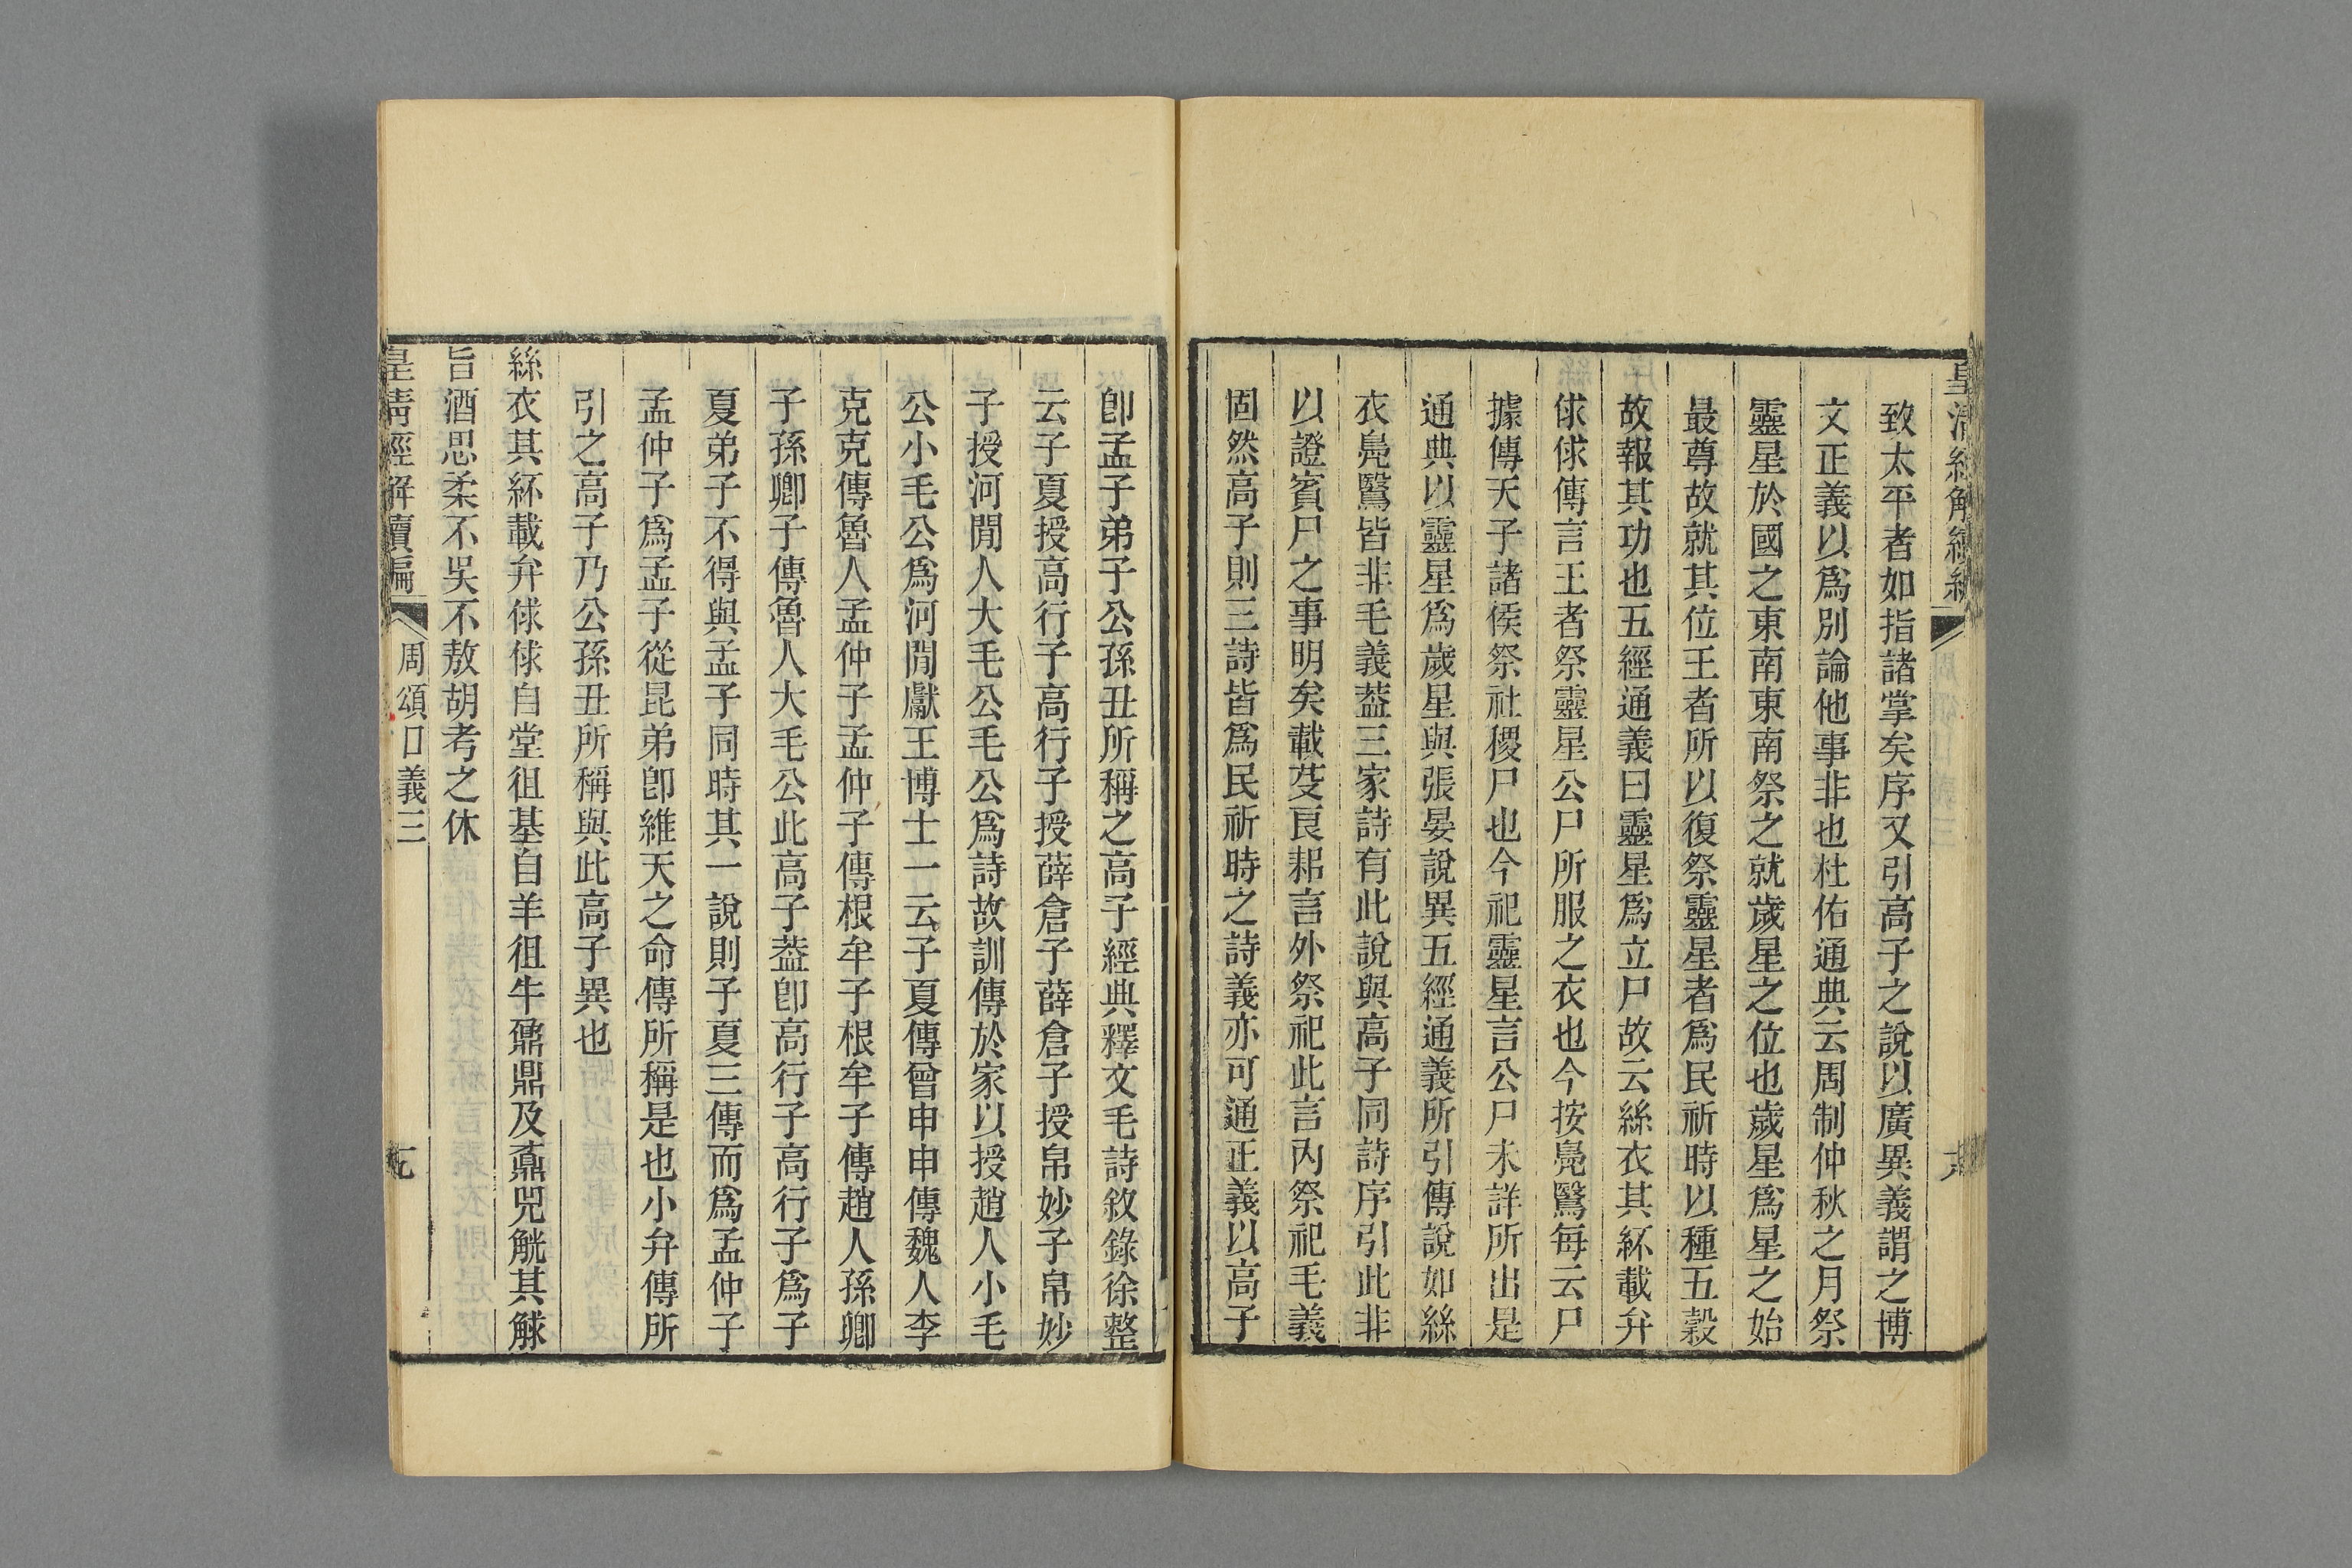 皇清經解續編
致太平者如指諸掌矣序又引高子之說以廣異義謂之博
文正義以爲別論他事非也杜佑通典云周制仲秋之月祭
靈星於國之東南東南祭之就歲星之位也歲星爲星之始
最尊故就其位王者所以復祭靈星者爲民祈時以種五穀
故報其功也五經通義曰靈星爲立尸故云絲衣其紑載弁
俅俅傳言王者祭靈星公尸所服之衣也今按鳧鷖每云尸
據傳天子諸侯祭社稷尸也今祀靈星言公尸未詳所出是
通典以靈星爲歲星與張晏說異五經通義所引傳說如絲
衣鳧鷖皆非毛義葢三家詩有此說與高子同詩序引此非
以證賓尸之事明矣載芟良耜言外祭祀此言內祭祀毛義
固然高子則三詩皆爲民祈時之詩義亦可通正義以高子
卽孟子弟子公孫丑所稱之高子經典釋文毛詩敘錄徐整
云子夏授高行子高行子授薛倉子薛倉子授帛妙子帛妙
子授河閒人大毛公毛公爲詩故訓傳於家以授趙人小毛
公小毛公爲河閒獻王博士一云子夏傳曾申申傳魏人李
克克傳魯人孟仲子孟仲子傳根牟子根牟子傳趙人孫卿
子孫卿子傳魯人大毛公此高子葢卽高行子高行子爲子
夏弟子不得與孟子同時其一說則子夏三傳而爲孟仲子
孟仲子爲孟子從昆弟卽維天之命傳所稱是也小弁傳所
引之高子乃公孫丑所稱與此高子異也
絲衣其紑載弁俅俅自堂徂基自羊徂牛鼐鼎及鼒兕觥其觩
旨酒思柔不吳不敖胡考之休
皇清經解續編 周頌口義三